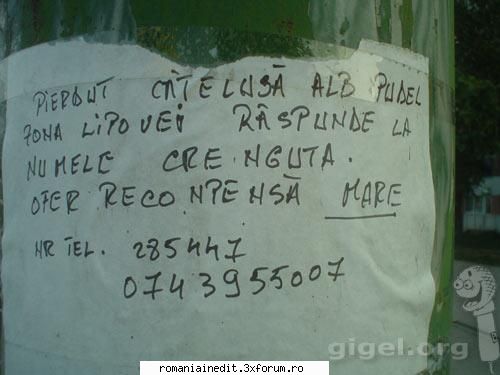 PIERDUT CĂȚELUSĂ ALB PUDEL
ZONA LIPOVEI RĂSPUNDE LA
NUMELE CRENGUTA.
OFER RECONPENSĂ MARE
NR TEL. 285447
0743955007
gigel.org
romaniainedit.3xforum.ro